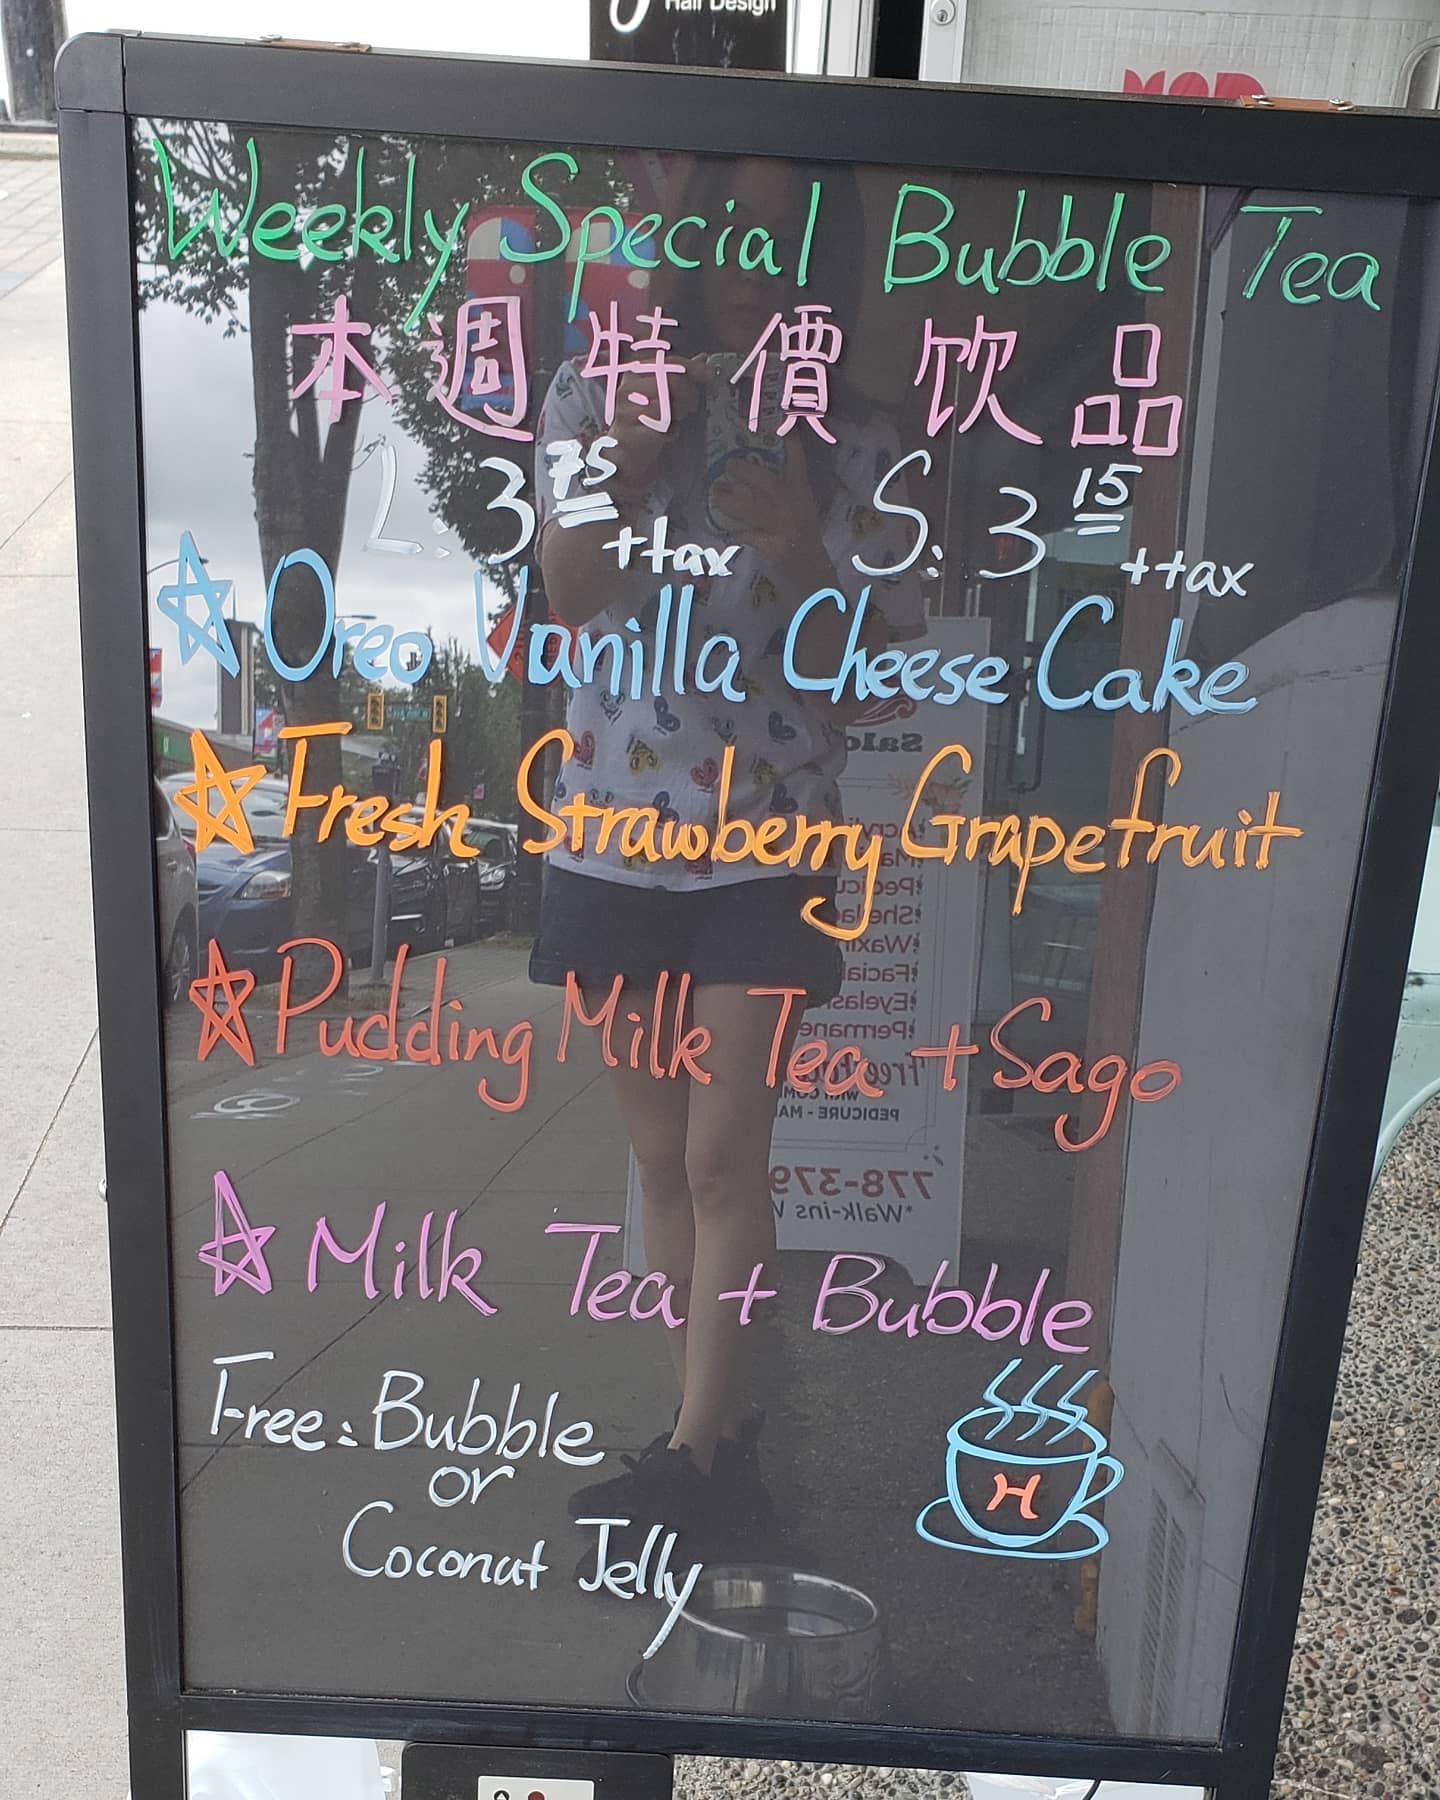 Hair Design
Weekly Special Bubble Tea
本週特價饮品
L: 3 75 +tax S: 3 15 +tax
Oreo Vanilla Cheese Cake
Fresh Strawberry Grapefruit
Pudding Milk Tea + Sago
Milk Tea + Bubble
Free: Bubble
or
Coconut Jelly
H
Pedicu
Waxin
Facial
Eyelas
Permane
PEDICURE - MA
778-379
*Walk-ins